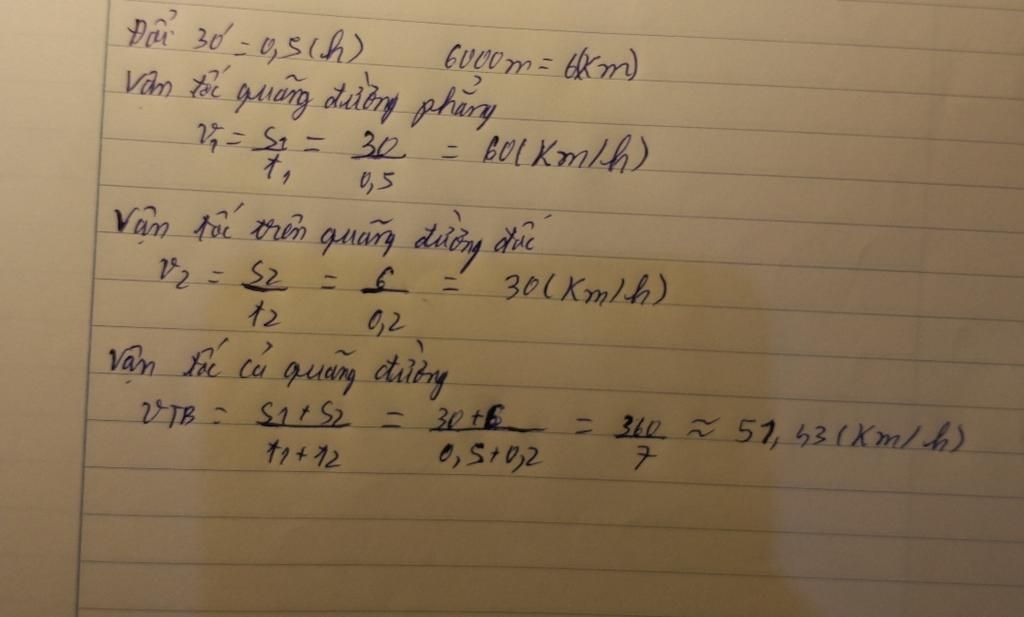 Đổi 30' = 0,5(h) 6000m = 6(Km)
Vận tốc quãng đường phẳng
v₁ = S1/t₁ = 30/0,5 = 60(Km/h)
Vận tốc trên quãng đường dốc
v₂ = S2/t2 = 6/0,2 = 30(Km/h)
Vận tốc cả quãng đường
vTB = S1+S2/t1+t2 = 30+6/0,5+0,2 = 360/7 ≈ 51,43(Km/h)